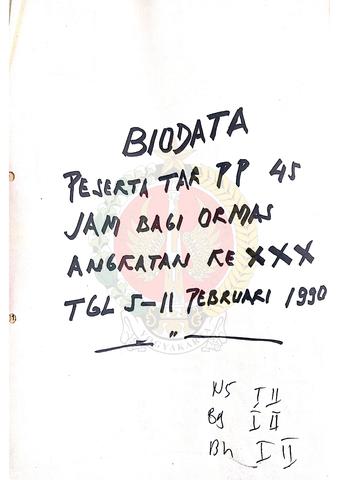 BIODATA
PESERTA TAR PP 45
JAM BAGI ORMAS
ANGKATAN KE XXX
TGL 5-11 PEBRUARI 1990
"
NS I II
Bg I II
Bh I II